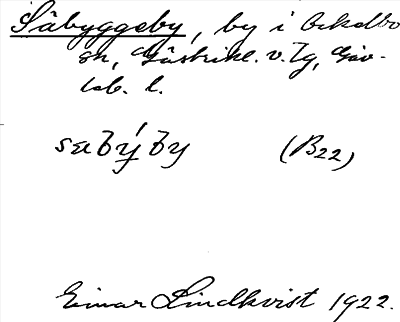 Såbyggeby, by i Ockelbo
sn, Gästrikl. v. Tg, Gäv-
leb. l.
(B22)
Einar Lindkvist 1922.